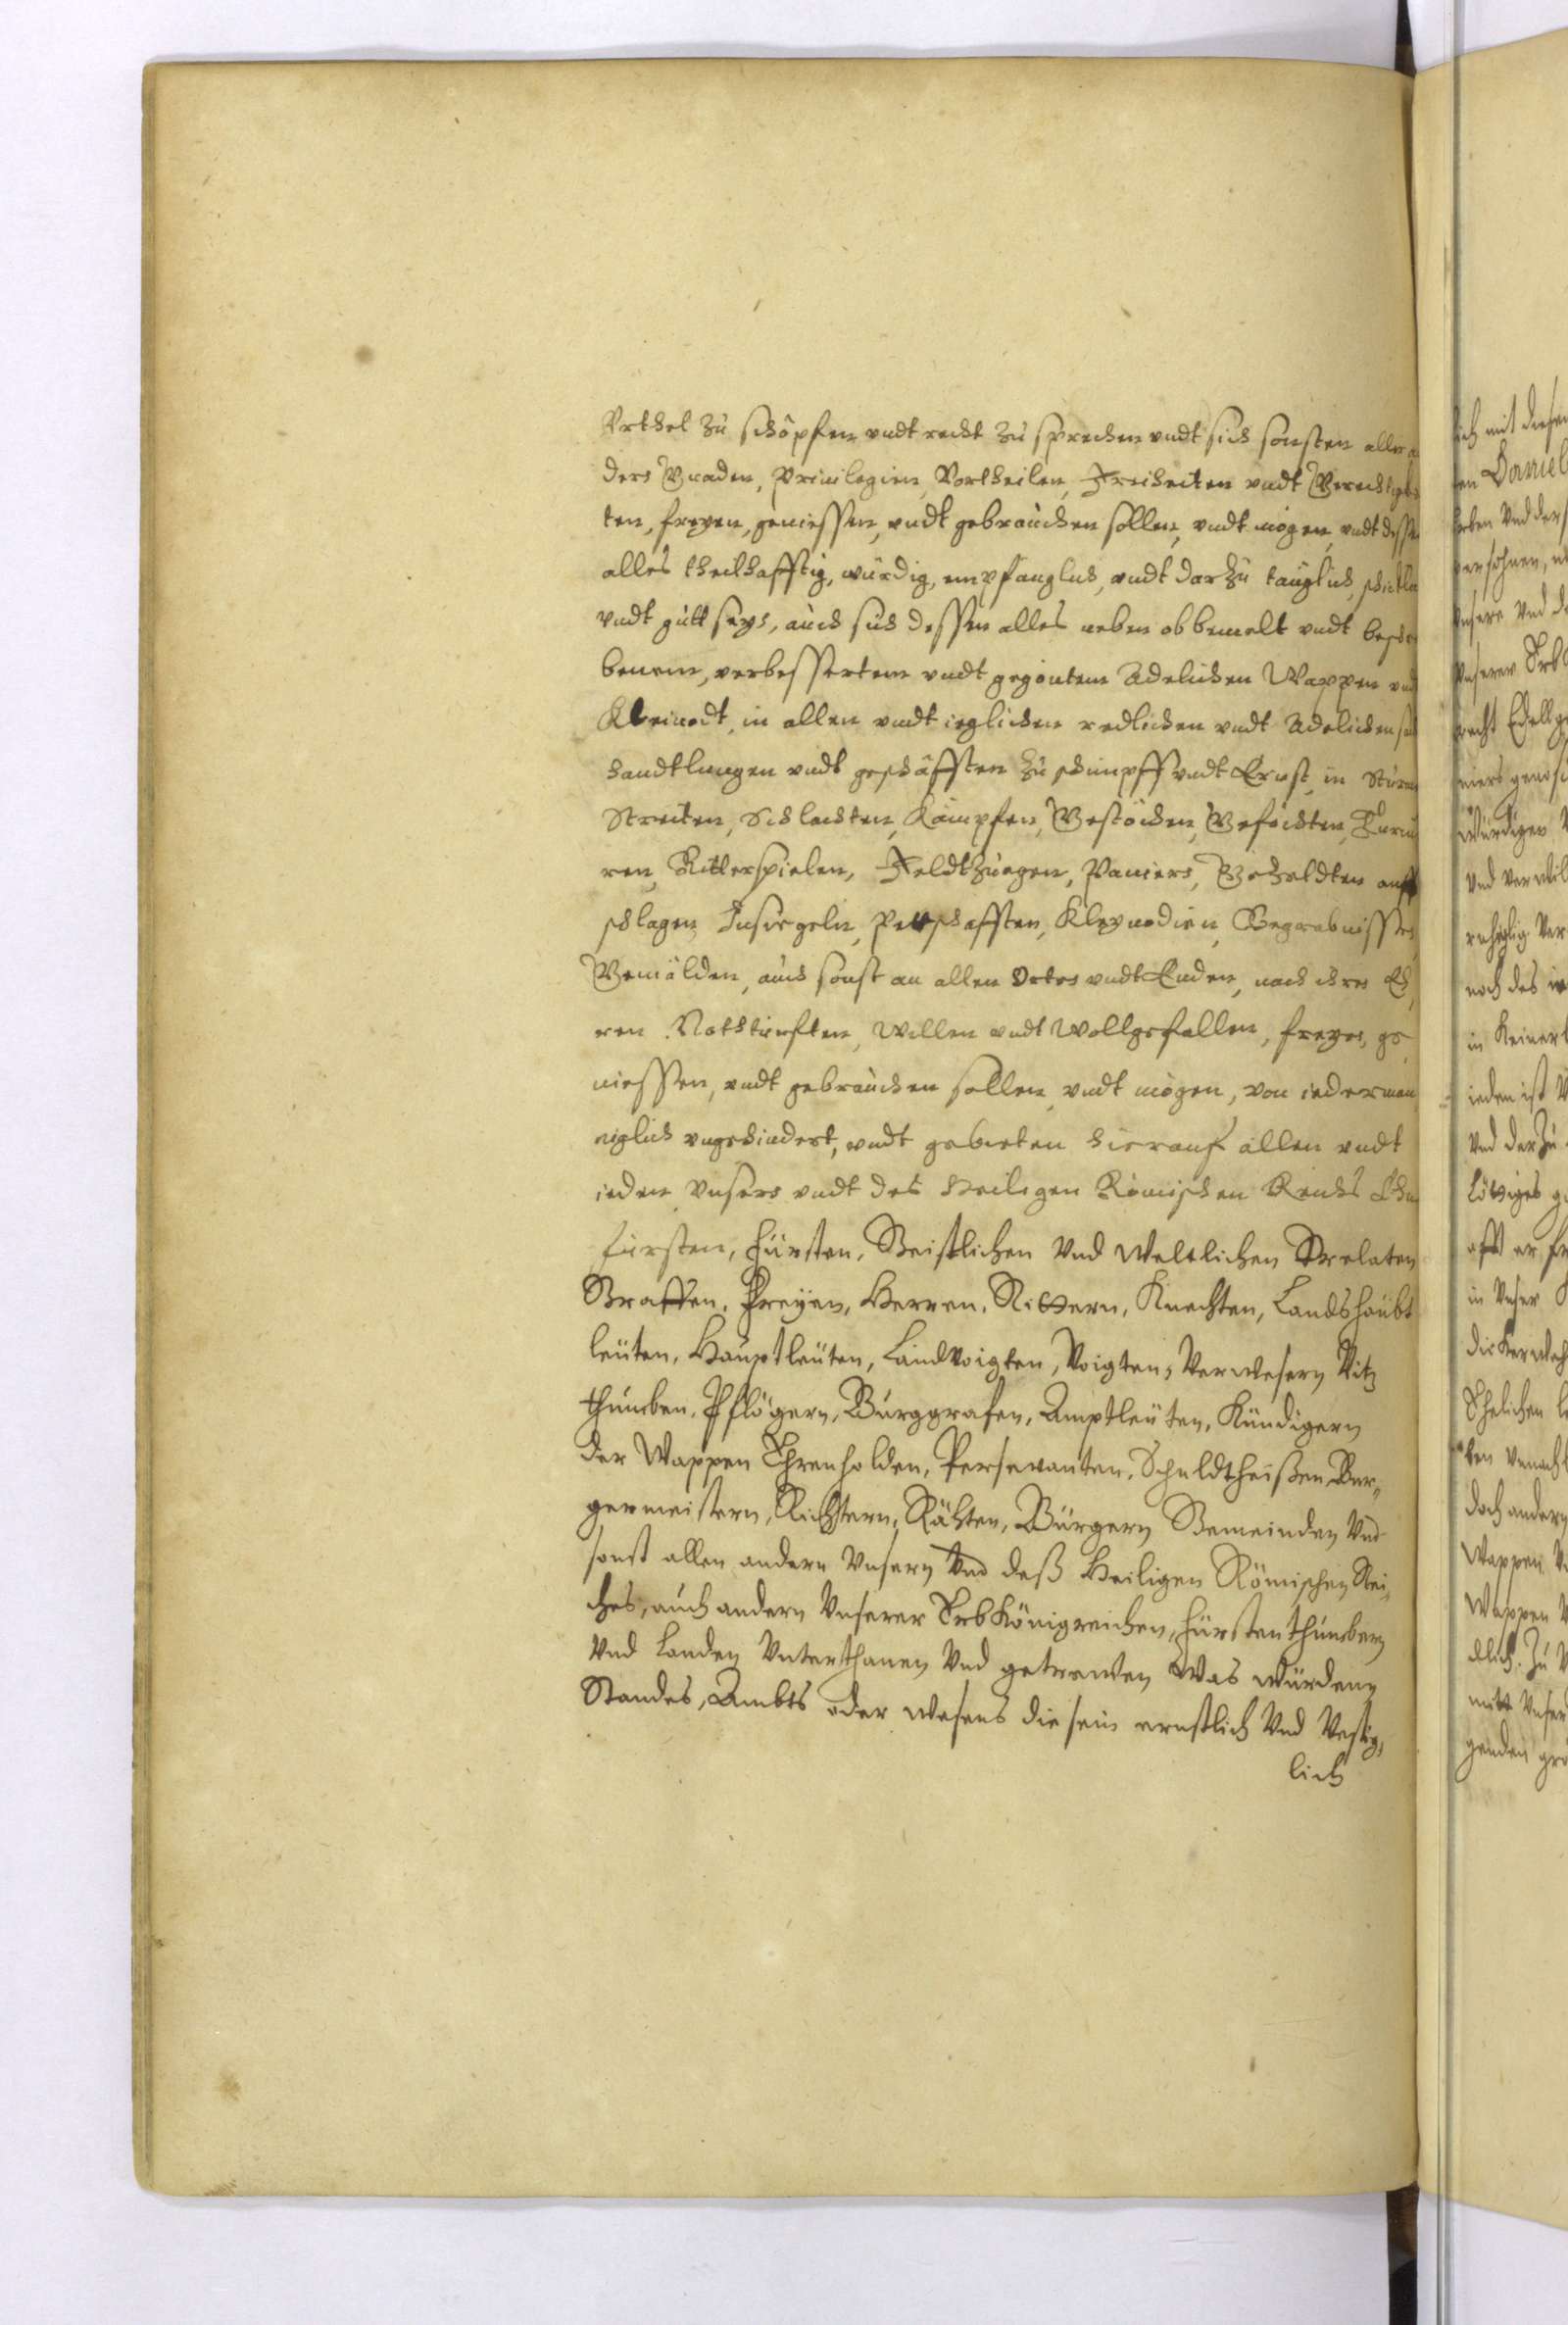 Vrthel zu schöpfen vndt recht zu sprechen vndt sich sonsten aller
ders Gnaden, Privilegien, Vortheilen, Freiheiten vndt Gerechtigkei
ten, freyen, geniessen, vndt gebrauchen sollen, vndt mögen, vndt dessen
alles theilhafftig, würdig, empfanglich, vndt darzu tauglich, schickli
vndt gutt seyn, auch sich dessen alles neben obbemelt vndt beschri
benem, verbessertem vndt gegöntem Adelichen Wappen vnd
Kleinodt, in allen vndt ieglichen redlichen vndt Adelichen
handtlungen vndt geschäfften zu schimpff vndt Ernst, in Sturm
Streiten, Schlachten, Kämpfen, Gestöchen, Gefechten, Turni
ren, Ritterspielen, Feldtzuegen, Paniers, Gezeldten auff
schlagen Insiegeln, Pettschafften, Kleynodien, Begrabnissen,
Gemälden, auch sonst an allen Orten vndt Enden, nach ihren Eh,
ren Nothturfften, Willen vndt Wollgefallen, freyen, ge
niessen, vndt gebrauchen sollen vndt mögen, von iederman
niglich vngehindert, vndt gebieten hierauf allen vndt
ieden Vnsers vndt des Heiligen Römischen Reichs Chu
fürsten, Fürsten, Geistlichen Vnd Weltlichen Prelaten
Graffen, Freÿen, Herren, Rittern, Knechten, Landshaübt
leüten, Hauptleüten, Landvoigten, Voigten, Verwesern Vitz
thumben, Pflögern, Burggrafen, Amptleüten, Kündigern
der Wappen Ehrenholden, Persevanten, Schuldtheißen Bur,
germeistern, Richtern, Räthen, Bürgern Gemeinden Vnd
sonst allen andern Vnsern Vnd deß Heiligen Römischen Rei,
ches, auch andern Vnserer Erb Königreichen, Fürstenthumbern
Vnd Landen Vnterthanen Vnd getrewen Was würden,
Standes, Ambts oder wesens die sein ernstlich Vnd Vestig,
lich